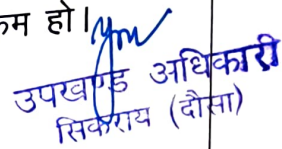 म हो।
उपखण्ड अधिकारी
सिकराय (दौसा)